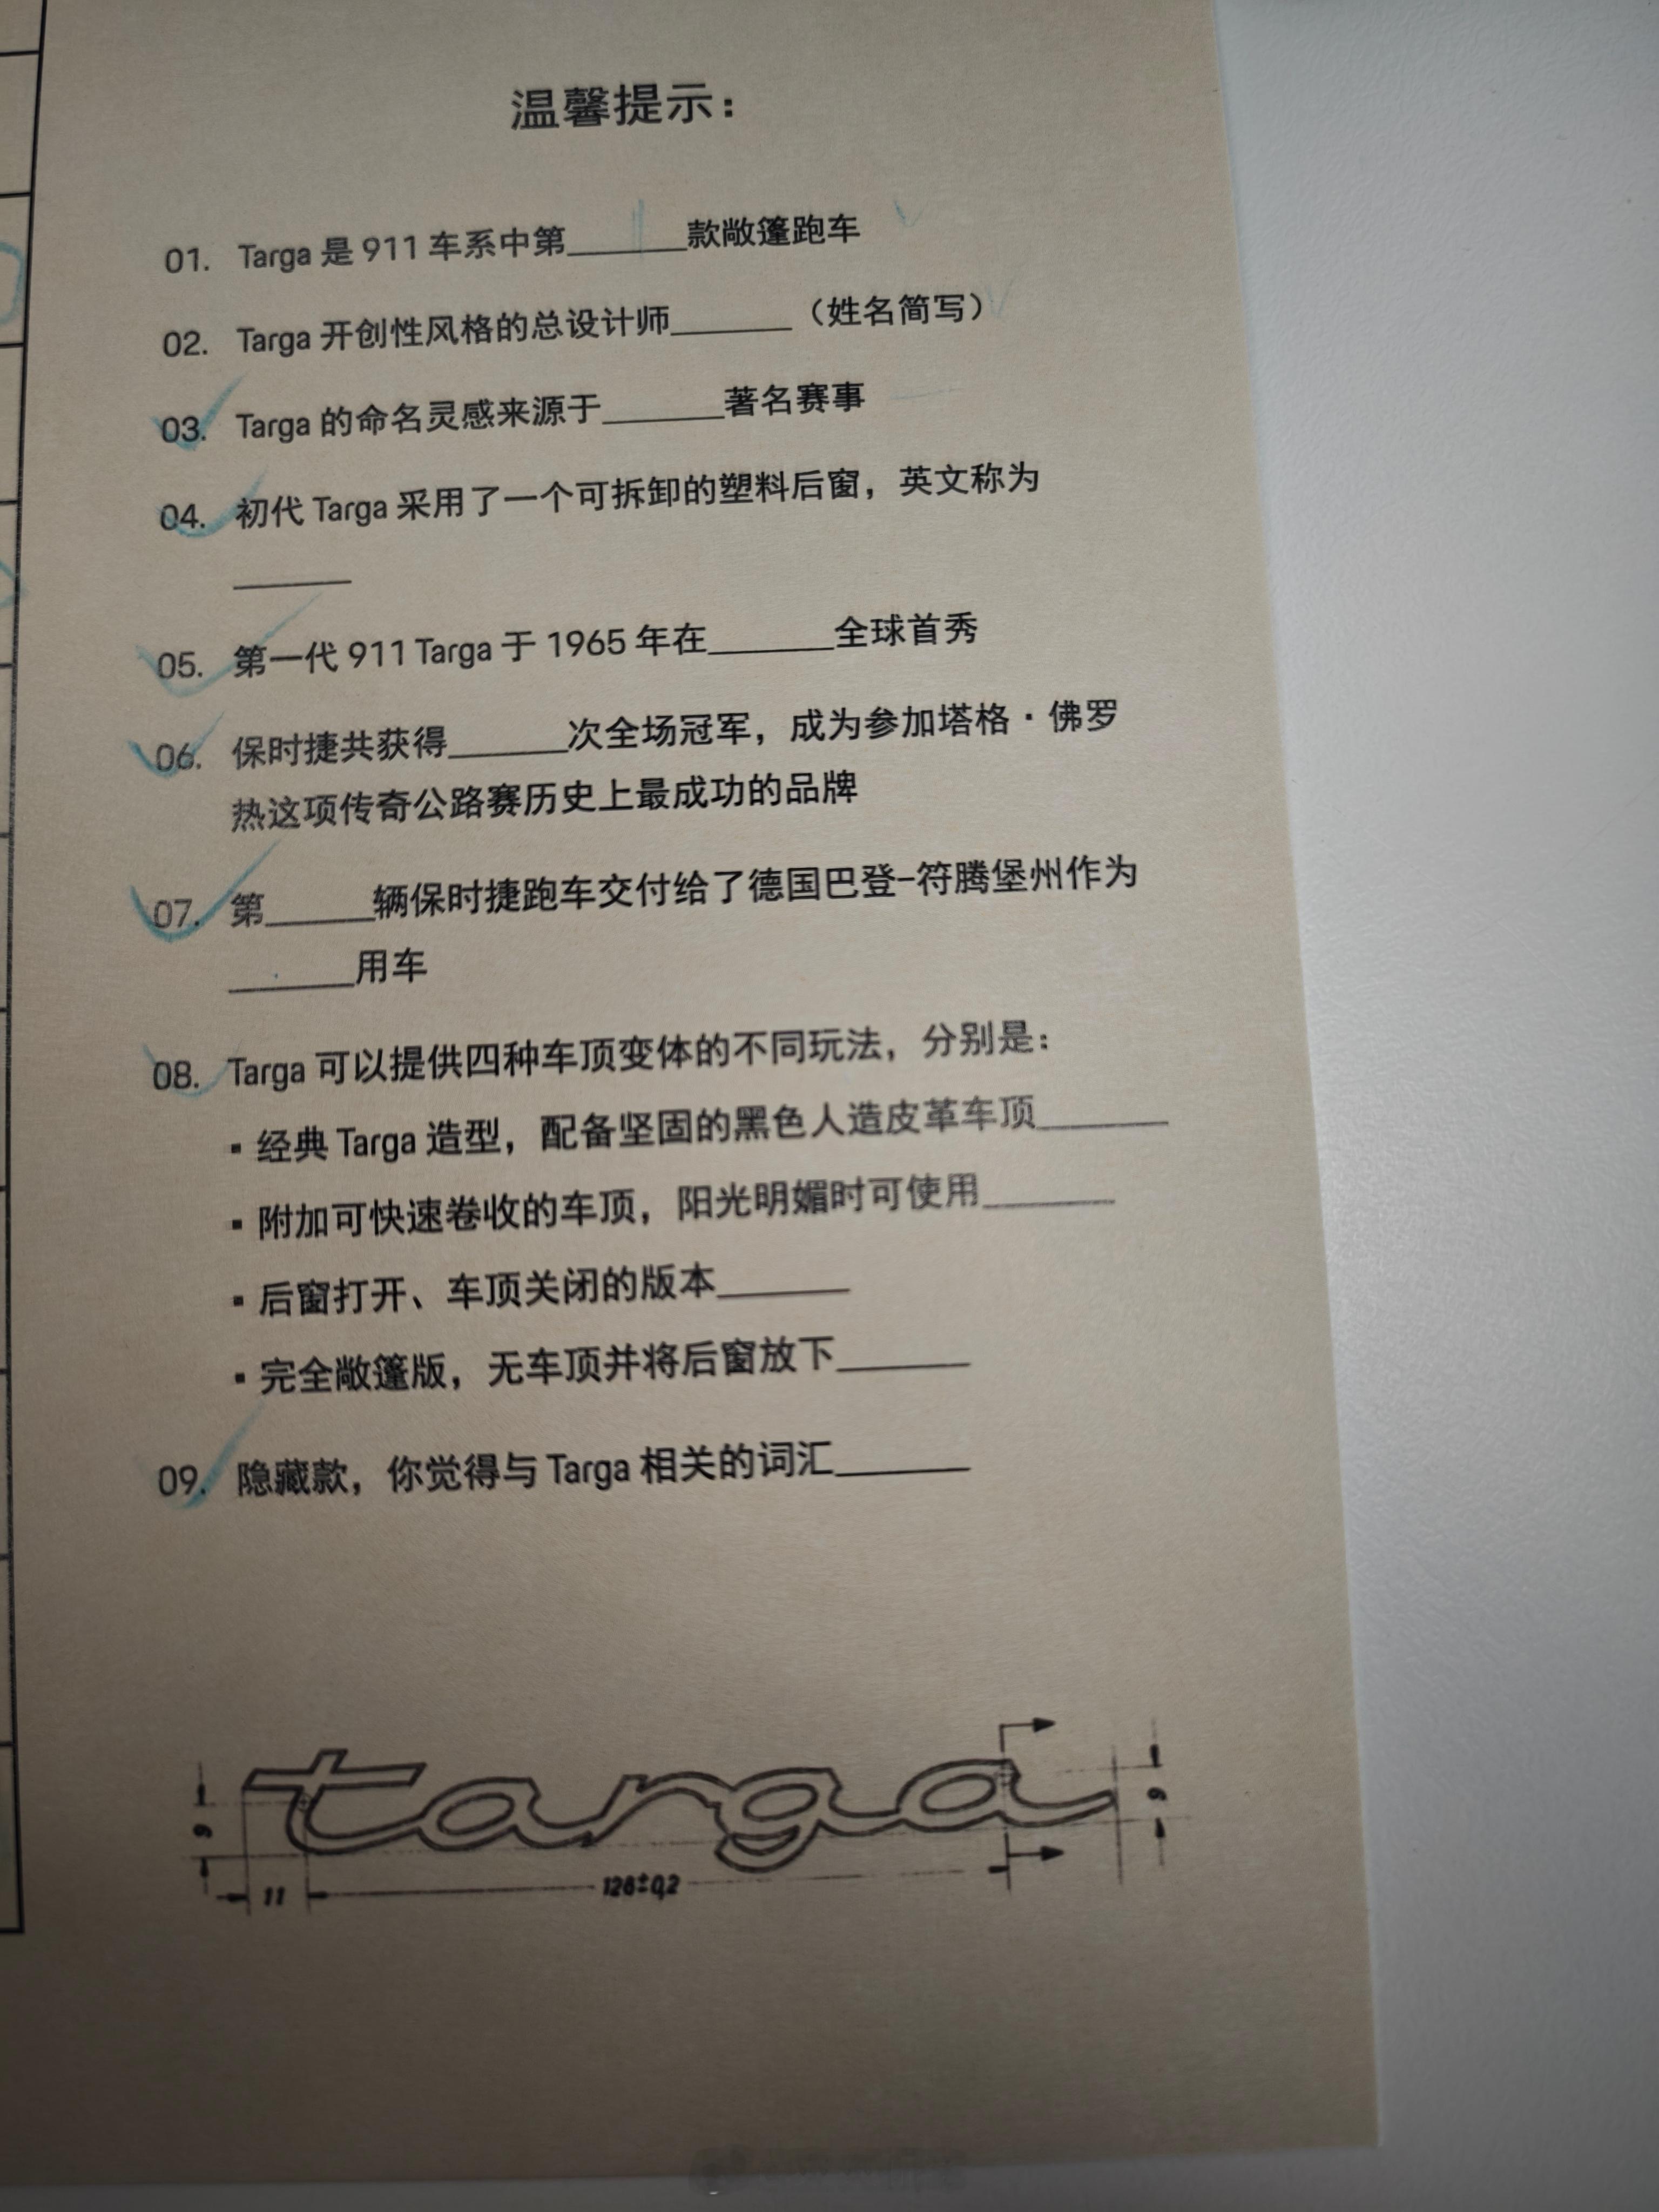 温馨提示：
01. Targa 是 911 车系中第______款敞篷跑车
02. Targa 开创性风格的总设计师______（姓名简写）
03. Targa 的命名灵感来源于______著名赛事
04. 初代 Targa 采用了一个可拆卸的塑料后窗，英文称为
______
05. 第一代 911 Targa 于 1965 年在______全球首秀
06. 保时捷共获得______次全场冠军，成为参加塔格·佛罗
热这项传奇公路赛历史上最成功的品牌
07. 第______辆保时捷跑车交付给了德国巴登-符腾堡州作为
______用车
08. Targa 可以提供四种车顶变体的不同玩法，分别是：
▪ 经典 Targa 造型，配备坚固的黑色人造皮革车顶______
▪ 附加可快速卷收的车顶，阳光明媚时可使用______
▪ 后窗打开、车顶关闭的版本______
▪ 完全敞篷版，无车顶并将后窗放下______
09. 隐藏款，你觉得与 Targa 相关的词汇______
targa
9 9
11 126±0,2